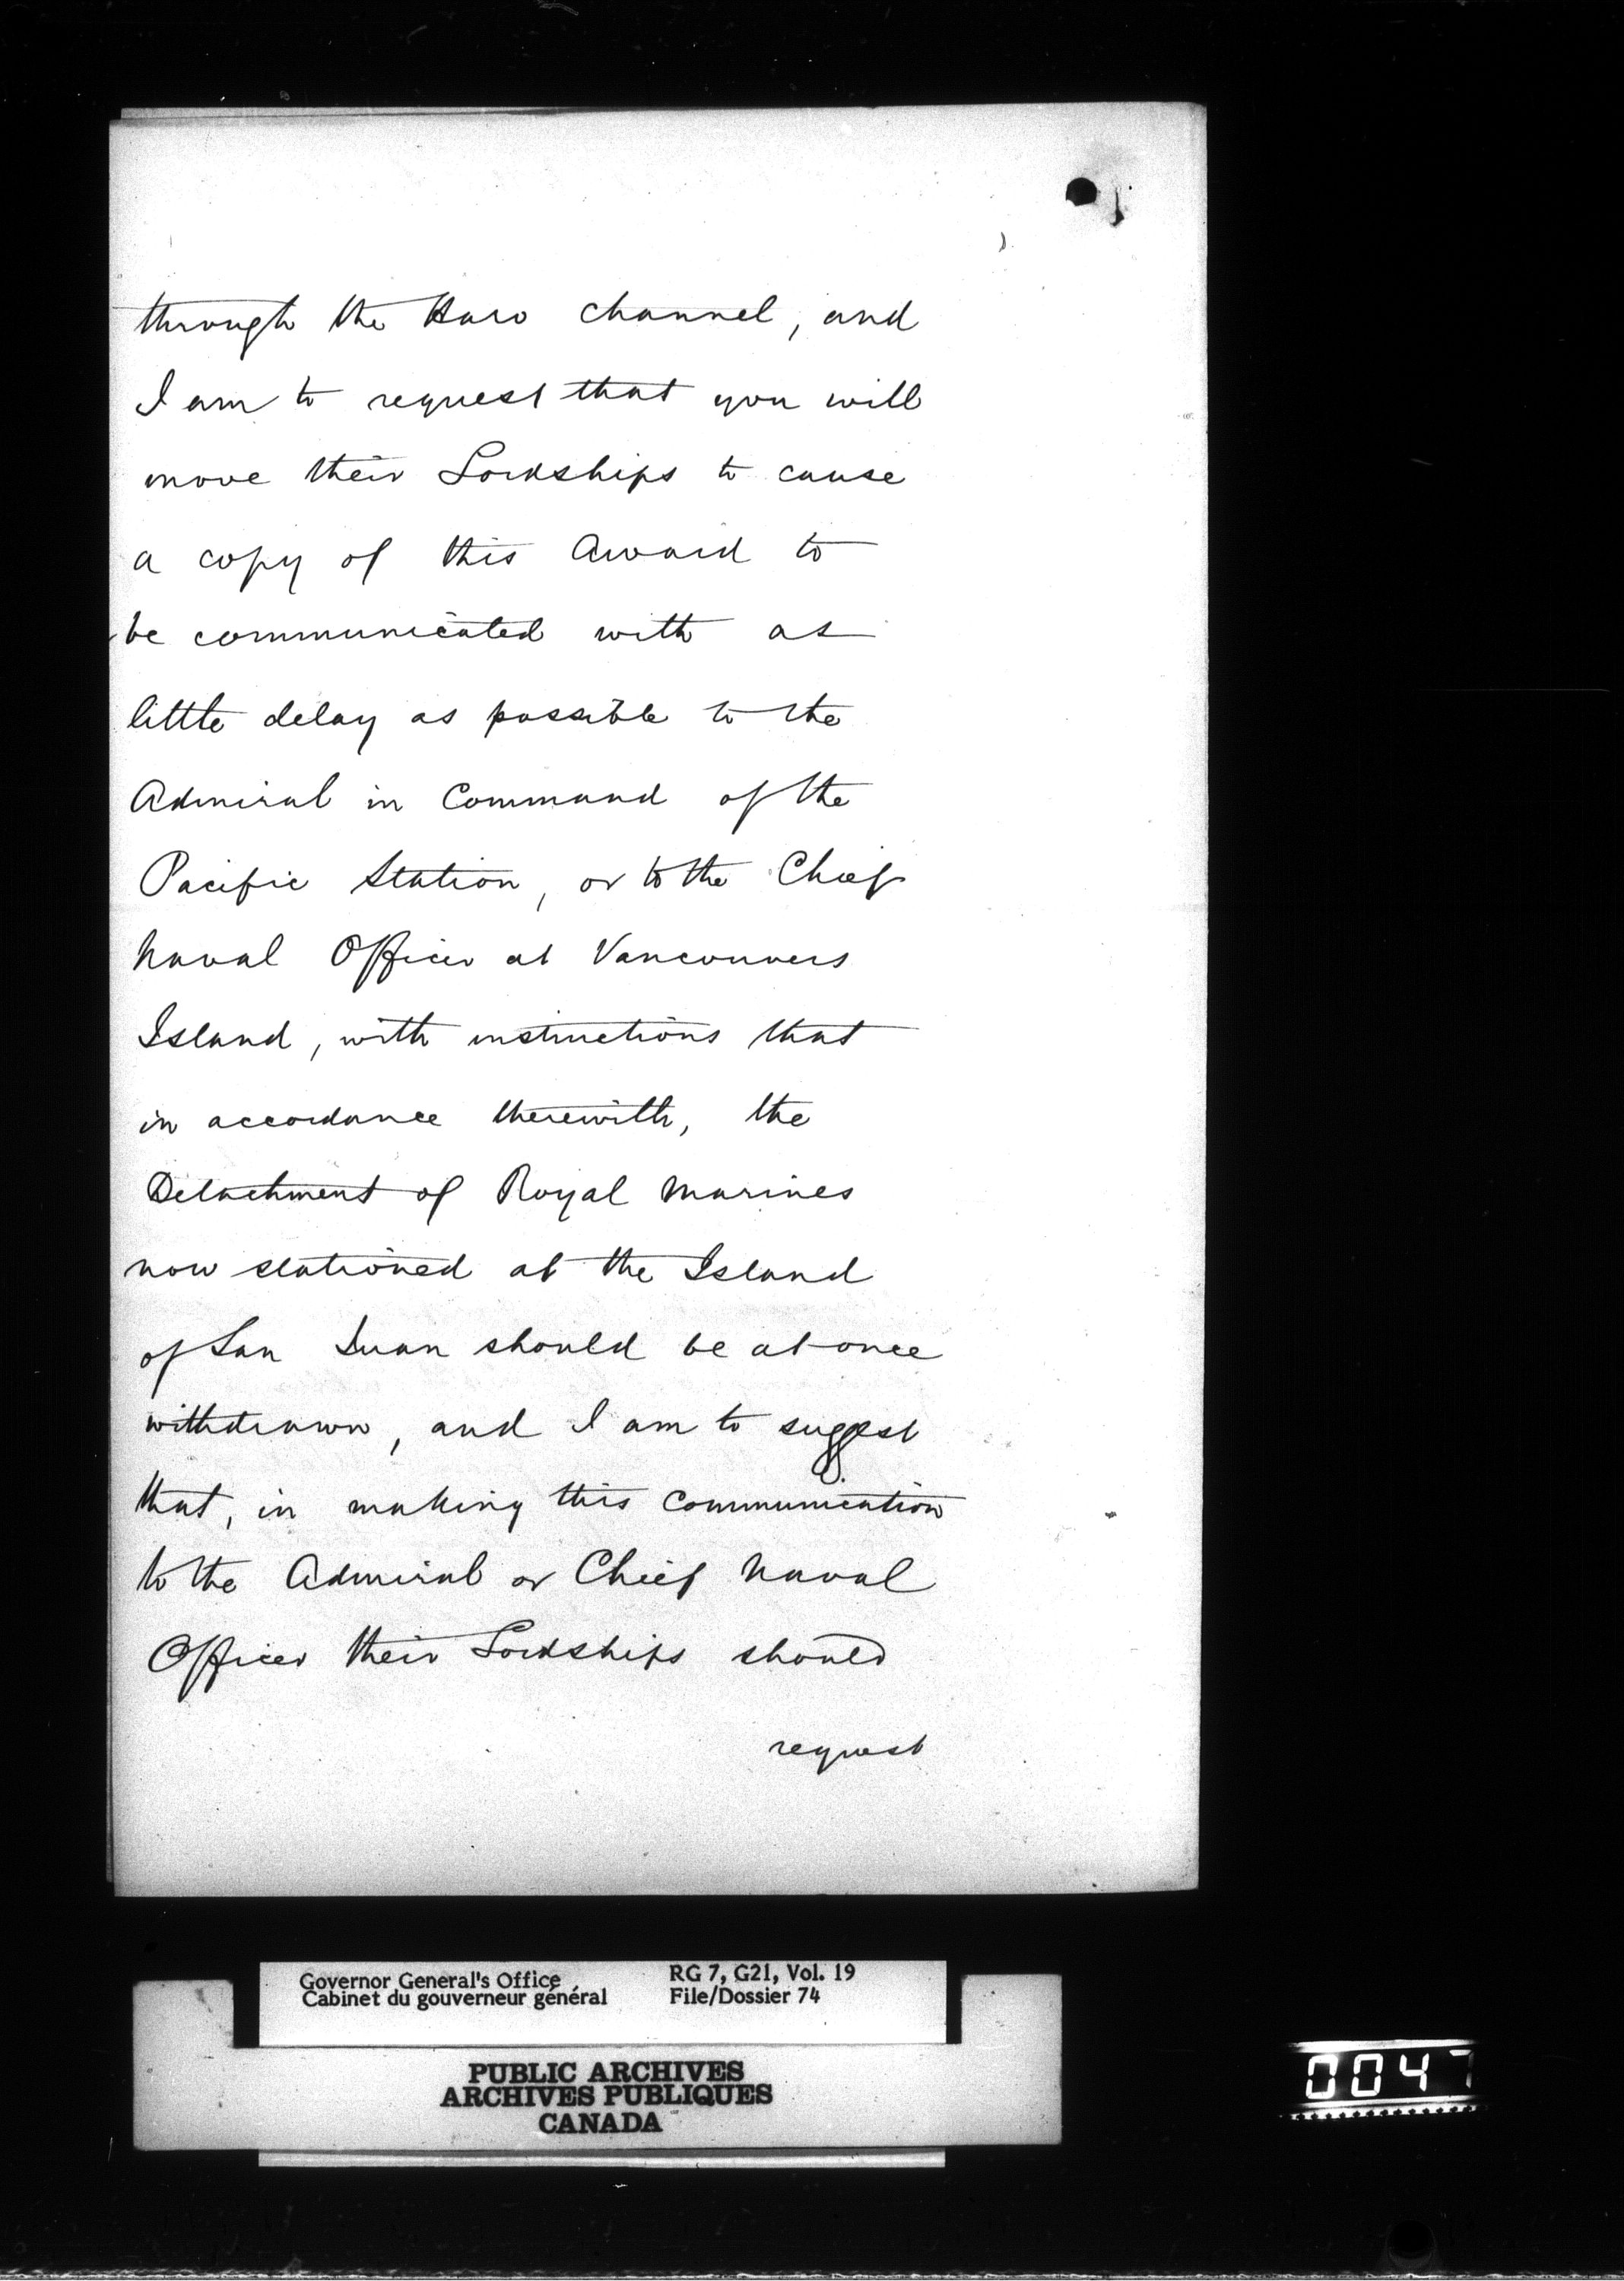 through the Haro channel, and
I am to request that you will
move their Lordships to cause
a copy of this Award to
be communicated with as
little delay as possible to the
Admiral in Command of the
Pacific Station, or to the Chief
Naval Officer at Vancouvers
Island, with instructions that
in accordance therewith, the
Detachment of Royal Marines
now stationed at the Island
of San Juan should be at once
withdrawn, and I am to suggest
that, in making this communication
to the Admiral or Chief Naval
Officer their Lordships should
request
Governor General's Office RG 7, G21, Vol. 19
Cabinet du gouverneur général File/Dossier 74
PUBLIC ARCHIVES
ARCHIVES PUBLIQUES
CANADA
0047